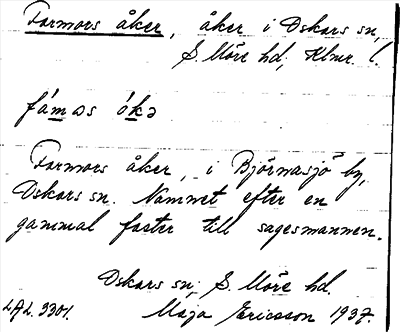 Farmors åker, åker i Oskars sn,
S. Möre hd, Klmr. l.
fámos ókə
Farmors åker, i Björnasjö by,
Oskars sn. Namnet efter en
gammal faster till sagesmannen.
Oskars sn, S. Möre hd.
LAL. 3301. Maja Ericsson 1937.